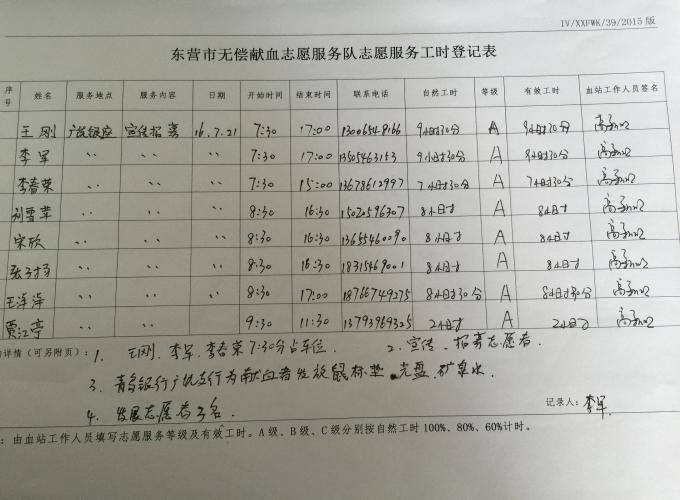 IV/XXFWK/39/2015 版
东营市无偿献血志愿服务队志愿服务工时登记表
序号 姓名 服务地点 服务内容 日期 开始时间 结束时间 联系电话 自然工时 等级 有效工时 血站工作人员签名
王刚 宣传招募 16.7.21 7:30 17:00 13006549166 9小时30分 A 9小时30分
李军 〃 〃 7:30 17:00 13505463153 9小时30分 A 9小时30分
李春荣 〃 〃 7:30 15:00 13678612997 7小时30分 A 7小时30分
刘雪苹 〃 〃 8:30 16:30 15020596307 8小时 A 8小时
宋欣 〃 〃 8:30 16:30 13655460090 8小时 A 8小时
〃 〃 8:30 16:30 18315469001 8小时 A 8小时
王泽萍 〃 〃 8:30 17:00 18766749275 8小时30分 A 8小时30分
贾江亭 〃 〃 9:30 11:30 13793969325 2小时 A 2小时
详情(可另附页): 1. 王刚、李军、李春荣7:30分占车位. 2. 宣传、招募志愿者.
3. 青岛银行广饶支行为献血者发放鼠标垫、光盘、矿泉水.
4. 发展志愿者3名.
记录人: 李军
: 由血站工作人员填写志愿服务等级及有效工时。A 级、B 级、C 级分别按自然工时 100%、80%、60%计时。